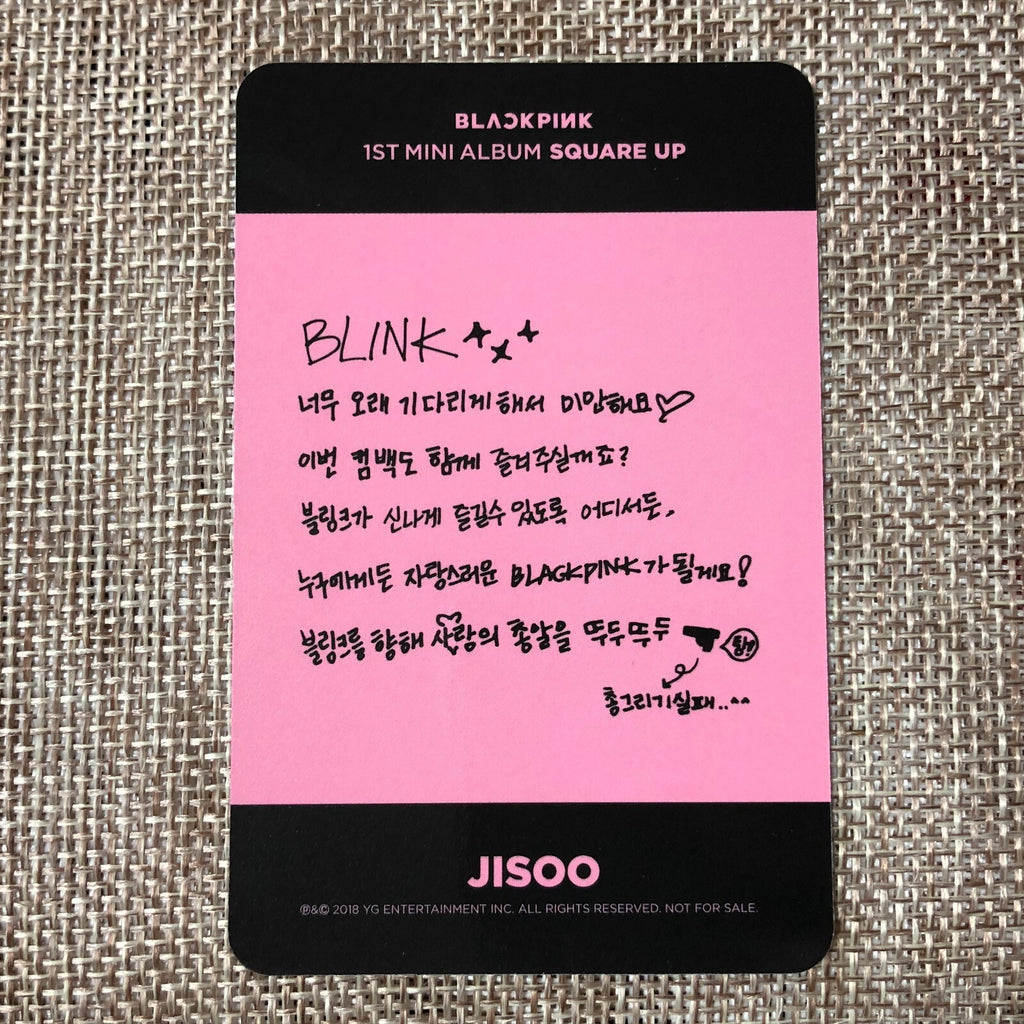 BLACKPINK
1ST MINI ALBUM SQUARE UP
BLINK
너무 오래 기다리게 해서 미안해요♡
이번 컴백도 함께 즐겨주실꺼죠?
블링크가 신나게 즐길수 있도록 어디서든,
누구에게든 자랑스러운 BLACKPINK가 될게요!
블링크를 향해 사랑의 총알을 뚜두뚜두
총그리기실패..^^
JISOO
℗&© 2018 YG ENTERTAINMENT INC. ALL RIGHTS RESERVED. NOT FOR SALE.